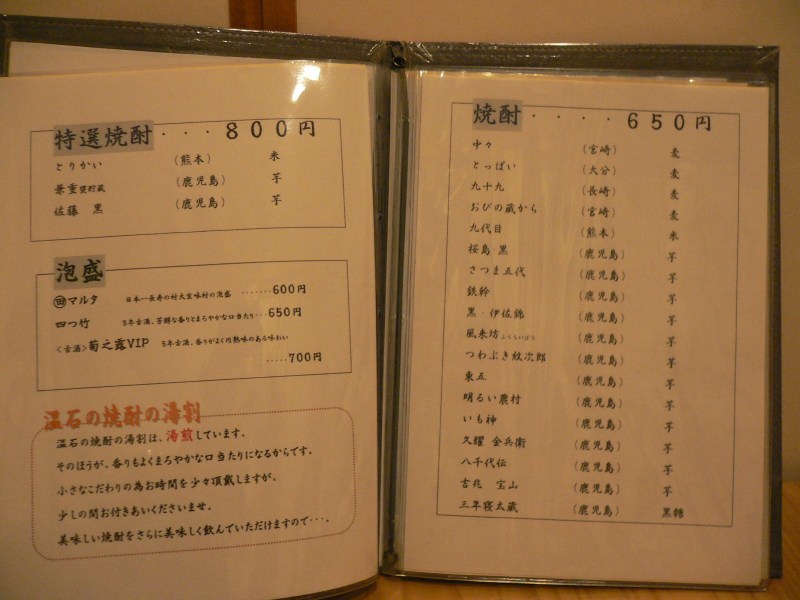 特選焼酎・・・800円
とりかい （熊本） 米
兼重 甕貯蔵 （鹿児島） 芋
佐藤 黒 （鹿児島） 芋
泡盛
マルタ 日本一長寿の村大宜味村の泡盛 ・・・・・・・600円
四つ竹 3年古酒、芳醇な香りとまろやかな口当たり・・・650円
〈古酒〉菊之露VIP 5年古酒、香りがよく円熟味のある味わい
・・・・・700円
温石の焼酎の湯割
温石の焼酎の湯割は、湯煎しています。
そのほうが、香りもよくまろやかな口当たりになるからです。
小さなこだわりの為お時間を少々頂戴しますが、
少しの間お付きあいくださいませ。
美味しい焼酎をさらに美味しく飲んでいただけますので・・・。
焼酎・・・・650円
中々 （宮崎） 麦
とっぱい （大分） 麦
九十九 （長崎） 麦
おびの蔵から （宮崎） 麦
九代目 （熊本） 米
桜島 黒 （鹿児島） 芋
さつま五代 （鹿児島） 芋
鉄幹 （鹿児島） 芋
黒・伊佐錦 （鹿児島） 芋
風来坊 ふうらいぼう （鹿児島） 芋
つわぶき紋次郎 （鹿児島） 芋
東五 （鹿児島） 芋
明るい農村 （鹿児島） 芋
いも神 （鹿児島） 芋
久耀 金兵衛 （鹿児島） 芋
八千代伝 （鹿児島） 芋
吉兆 宝山 （鹿児島） 芋
三年寝太蔵 （鹿児島） 黒糖